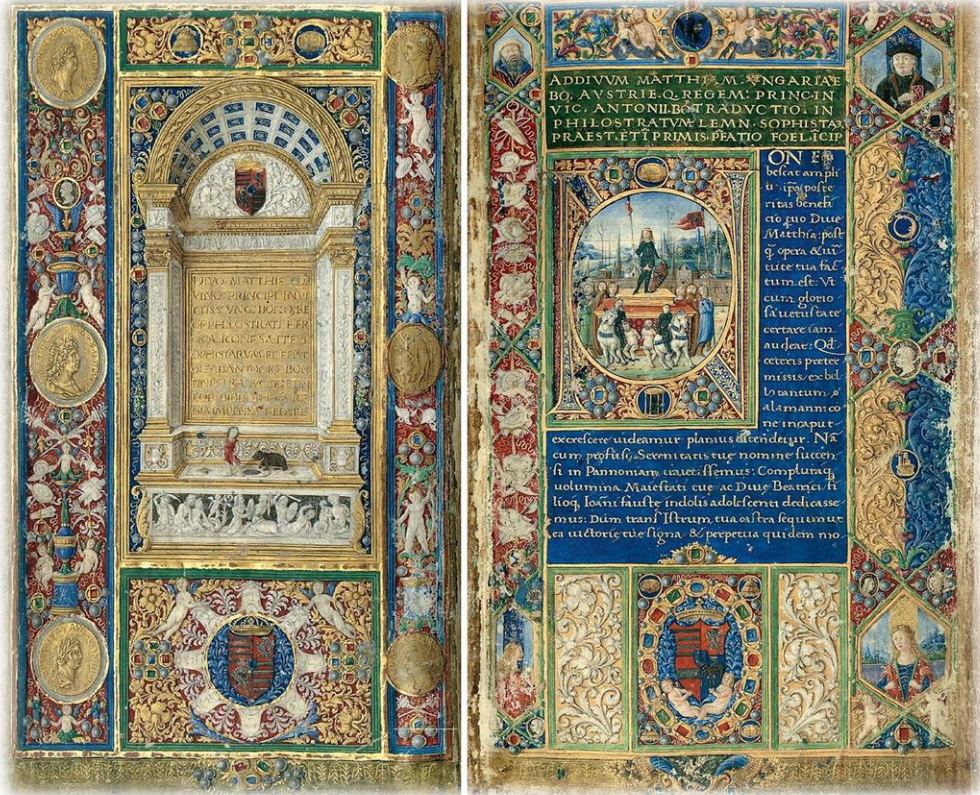 DIVO MATTHIE COR
VINO PRINCIPI INVI
CTISS VNG BOE Q RE
GI PHILOSTRATI HER
OICA ICONES VITE S
OPHISTARVM ET EPIST
OLE AB ANTONIO BON
FINE TRADVCTE
ADDIVVM MATTHIAM VNGARIAE
BO AVSTRIE Q REGEM PRINCIN
VIC ANTONII BO TRADVCTIO IN
PHILOSTRATVM LEMN SOPHISTA
PRAEST ET I PRIMIS PFATIO FOELICIP
ON
bescat ampli
poste
ritas benefi
cio quo Diue
Matthia: post
opera & uir
tute tua fac
tum est: Vt
cum glorio
sa uetustate
certare iam
audeat: Qd
ceteris preter
missis: ex bel
lo tantum
alamannico
ne in caput
excrescere uideamur planius ostendetur. Na
cum profusi, Serenitatis tue nomine succen
si in Pannoniam uenissemus: Compluraq
uolumina Maiestati tue ac Diue Beatrici fi
lioq Ioani fauste indolis adolescenti dedicasse
mus: Dum trans Istrum tua castra sequimur
ea uictorie tue signa & perpetua quidem mo